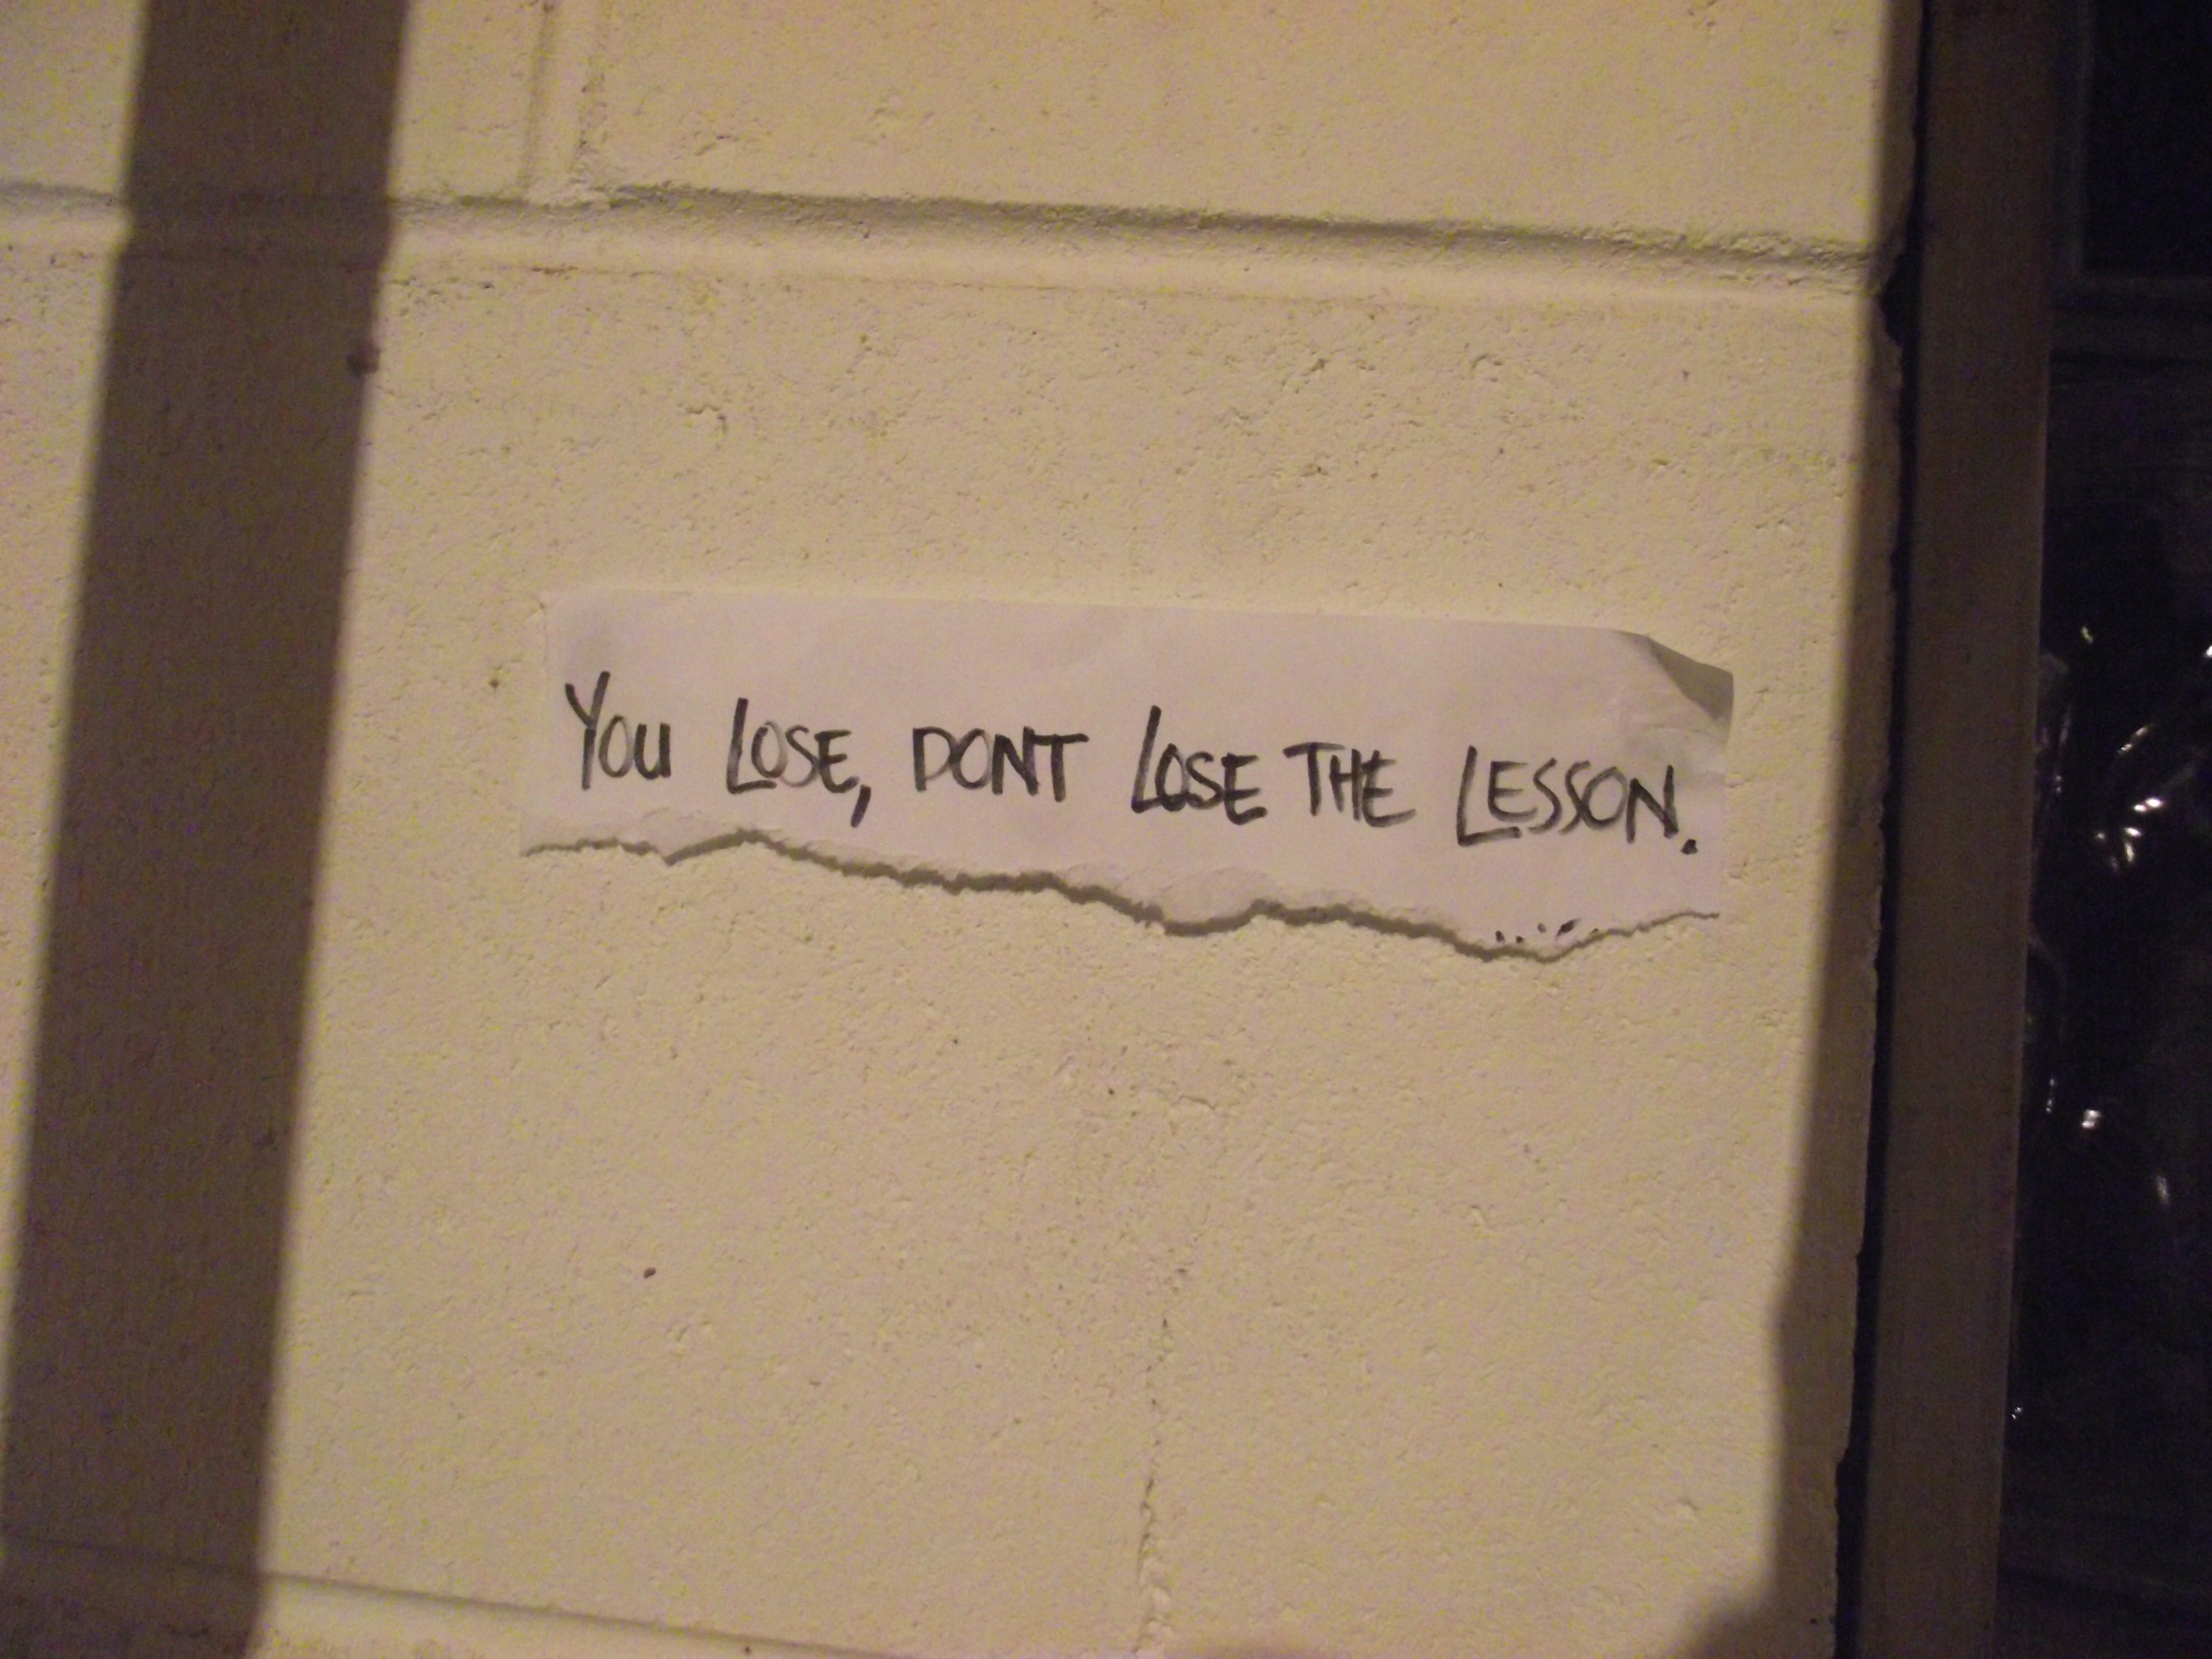 YOU LOSE, DONT LOSE THE LESSON.